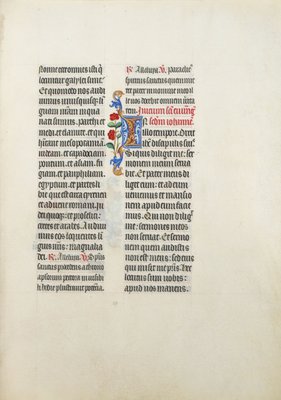 Nonne ecce omnes isti q̄
loquuntur galylei sunt:
Et quomodo nos audi
uimus unusquisqȝ lin
guam nostram in qua
nati sumus. Parthi et
medi et elamite: et qui
habitant mesopotamiam
iudeam. et capadociam.
pontum. et asiam. fri
giam. et pamphiliam.
egyptum et partes li
bie que est circa cyrenen
et aduene romani. iu
dei quoqȝ: et proseliti:
cretes et arabes. Audiui
mus eos loquentes lin
guis nr̄is: magnalia
dei. R. Alleluia. V. Spūs
sanctus procedens a throno
apostolorum pectora inuisibi
li hodie
R. Alleluia V. Paraclit
spiritus sanctus quem mitt
et pater in nomine meo il
le uos docebit omnem
Inicium
secdm iohanne.
In illo tempore. Dixit
ihc̄ discipulis suis:
Siquis diligit me: ser
monem meum serua
bit. Et pater meus dili
get eum: et ad eum
ueniemus et mansio
nem apud eum facie
mus. Qui non diligit
me: sermones meos
non seruat. Et sermo
nem quem audistis
non est meus: sed eius
qui misit me pr̄is. Hec
locutus sum uobis:
apud uos manens.